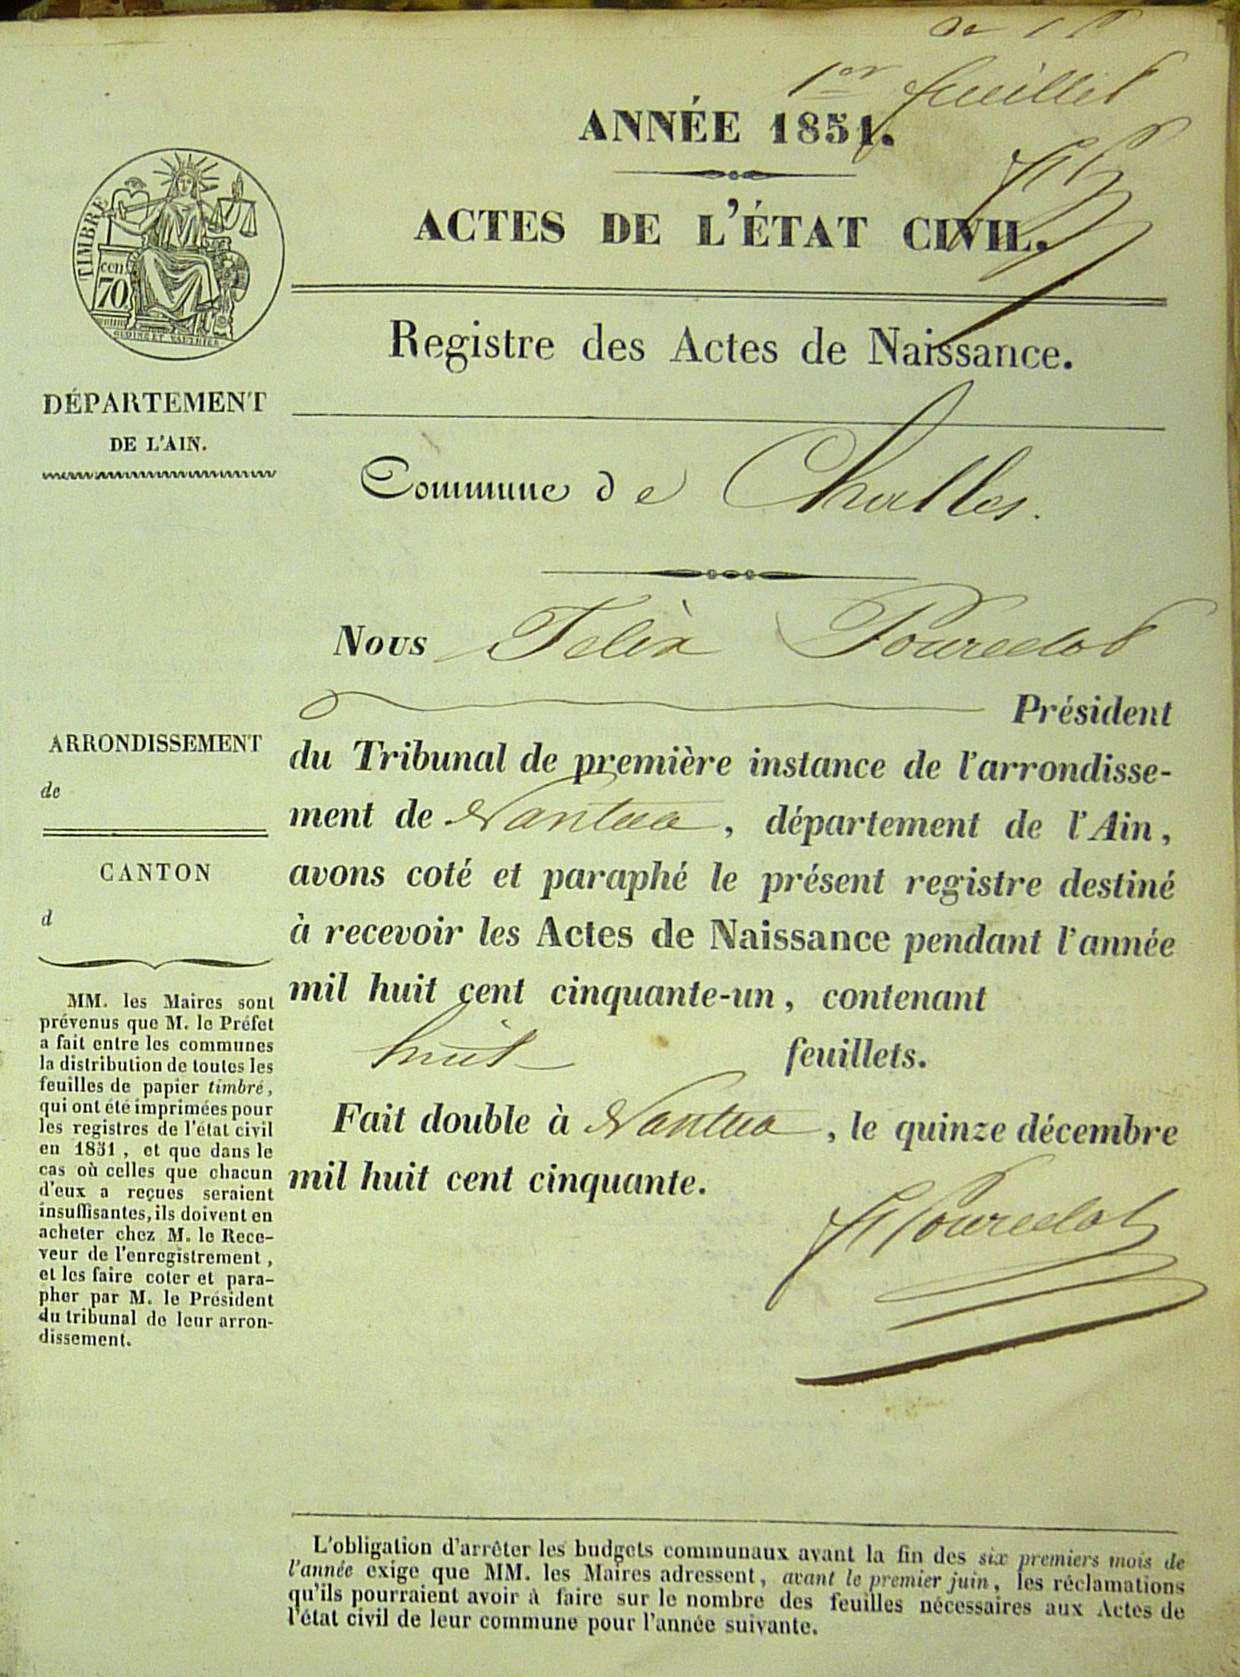 1er feuillet
ANNÉE 1851.
ACTES DE L'ÉTAT CIVIL.
TIMBRE
cen
70
Registre des Actes de Naissance.
DÉPARTEMENT
DE L'AIN.
Commune de Challes.
Nous Félix Pourcelot
Président
du Tribunal de première instance de l'arrondisse-
ment de Nantua, département de l'Ain,
avons coté et paraphé le présent registre destiné
à recevoir les Actes de Naissance pendant l'année
mil huit cent cinquante-un, contenant
huit feuillets.
Fait double à Nantua, le quinze décembre
mil huit cent cinquante.
Pourcelot
ARRONDISSEMENT
de
CANTON
d
MM. les Maires sont
prévenus que M. le Préfet
a fait entre les communes
la distribution de toutes les
feuilles de papier timbré,
qui ont été imprimées pour
les registres de l'état civil
en 1851, et que dans le
cas où celles que chacun
d'eux a reçues seraient
insuffisantes, ils doivent en
acheter chez M. le Rece-
veur de l'enregistrement,
et les faire coter et para-
pher par M. le Président
du tribunal de leur arron-
dissement.
L'obligation d'arrêter les budgets communaux avant la fin des six premiers mois de
l'année exige que MM. les Maires adressent, avant le premier juin, les réclamations
qu'ils pourraient avoir à faire sur le nombre des feuilles nécessaires aux Actes de
l'état civil de leur commune pour l'année suivante.